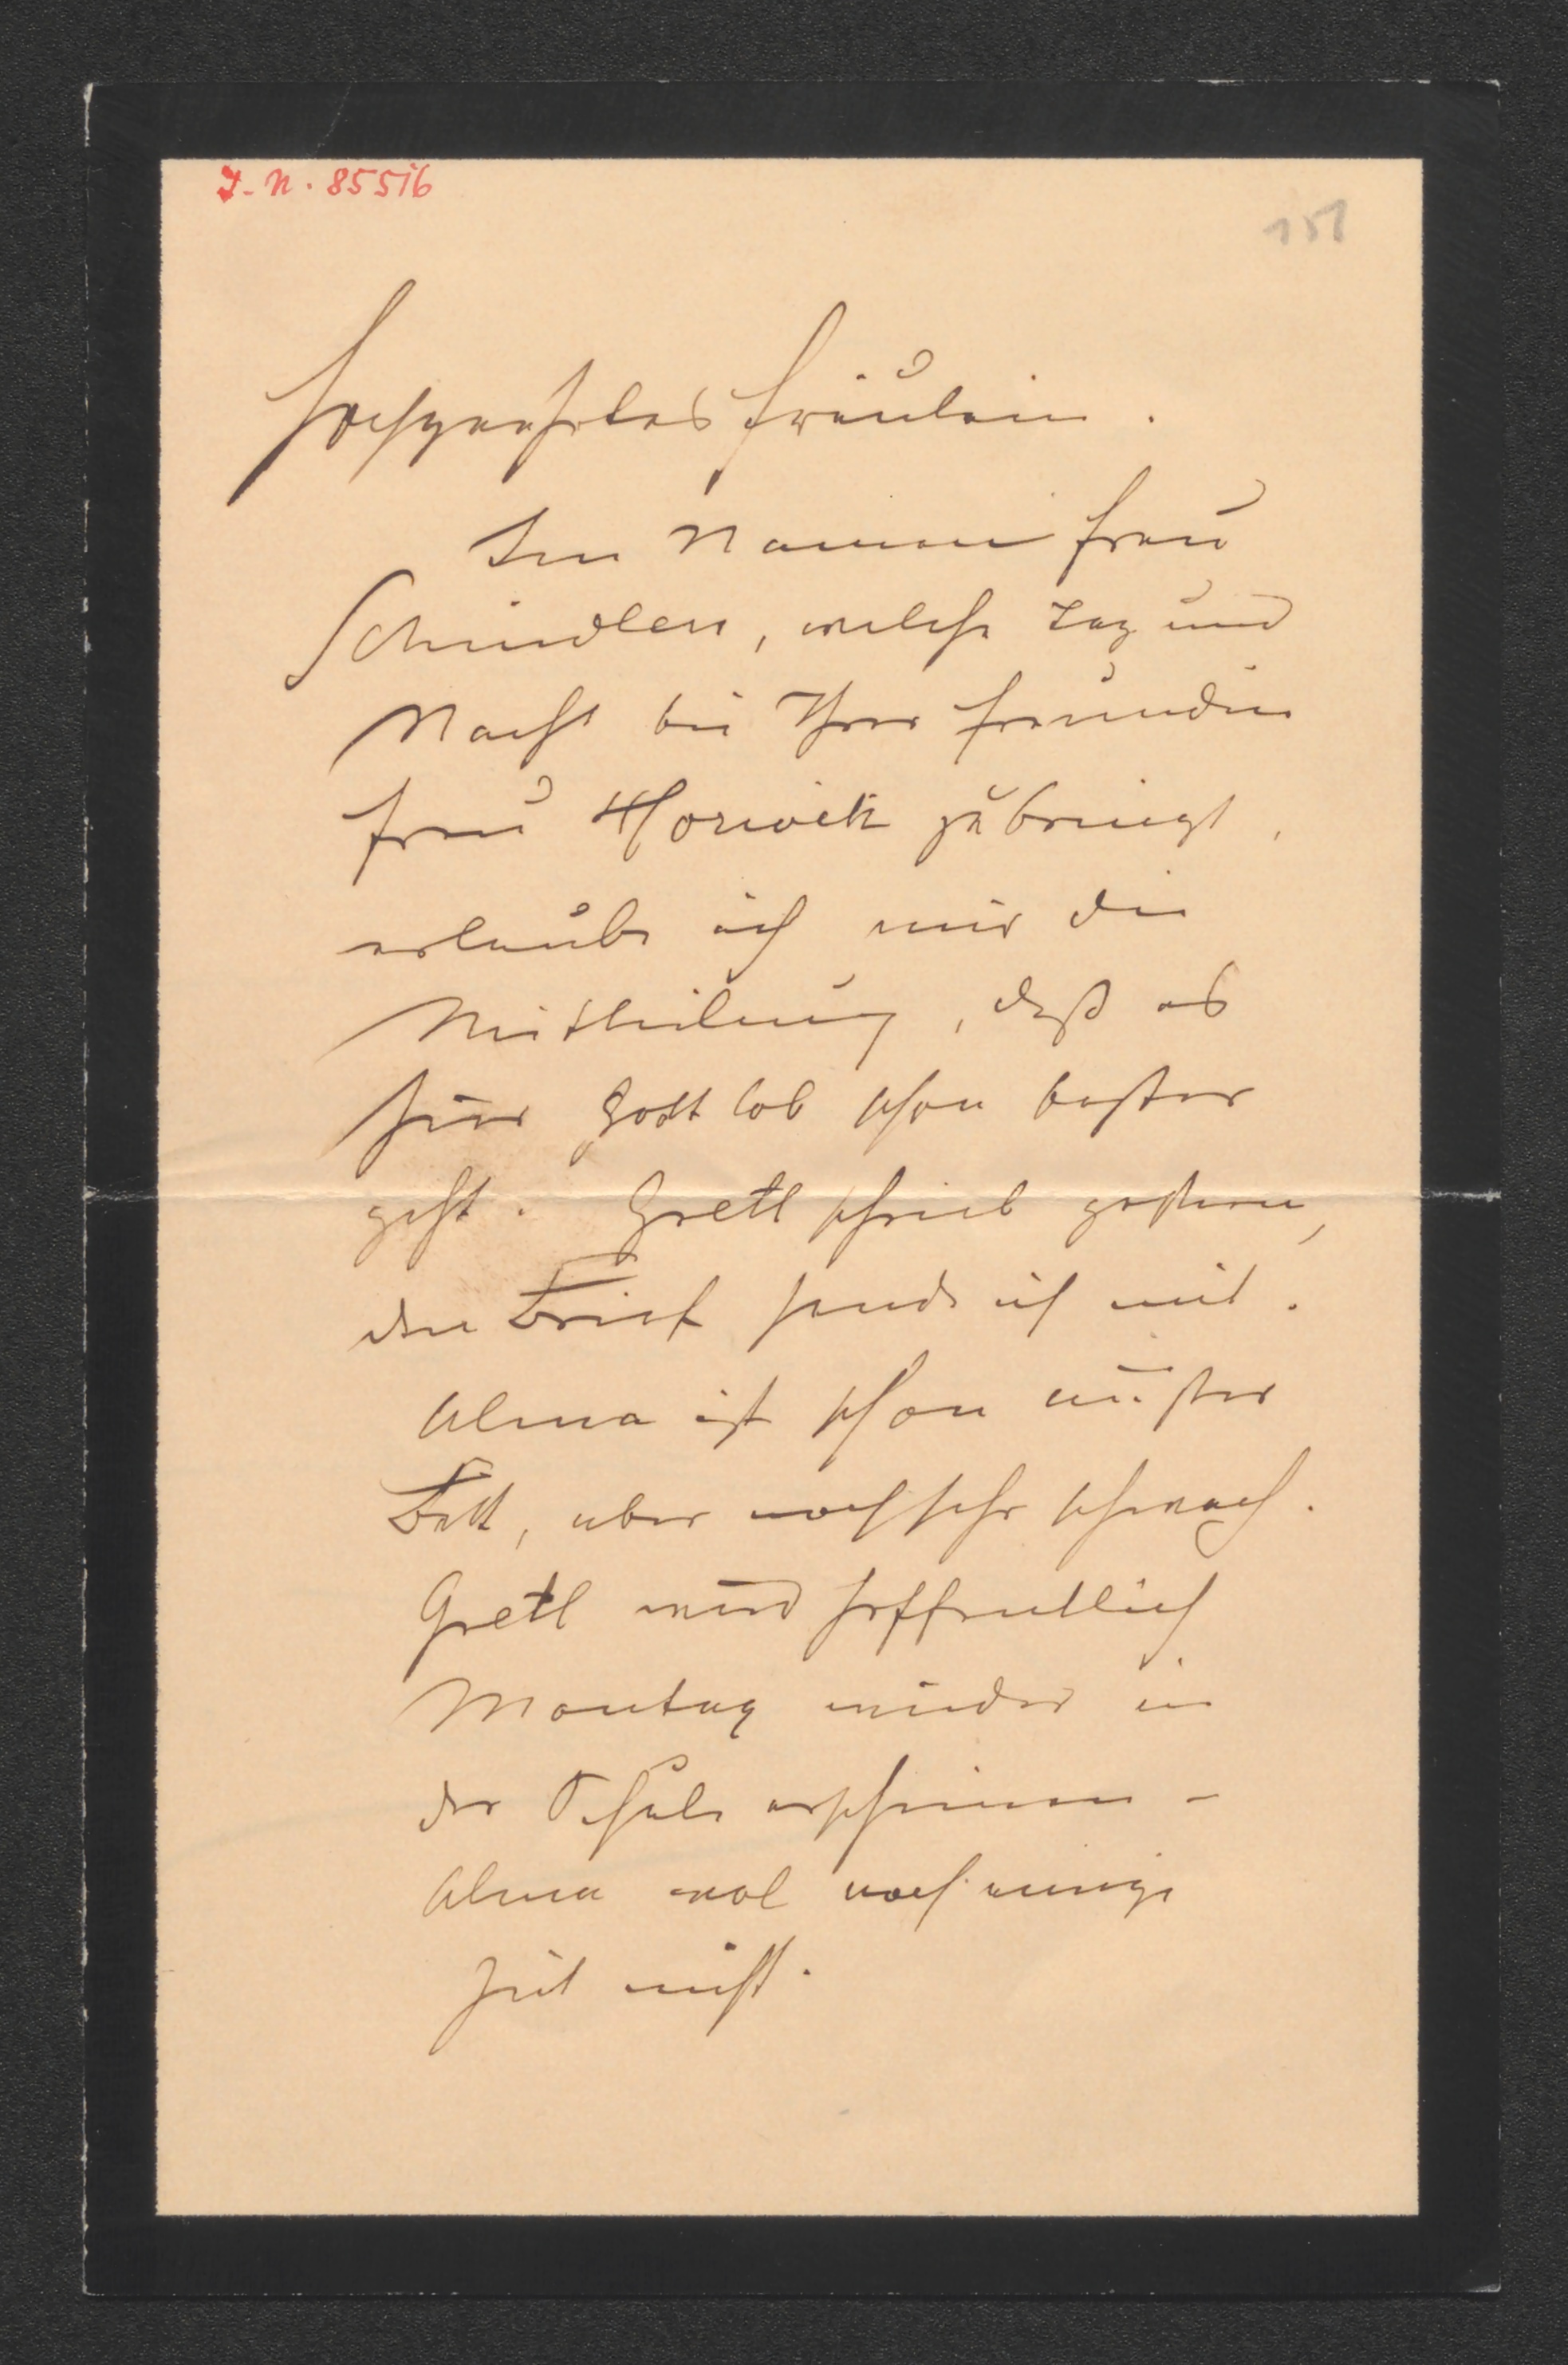 I. N. 85516
151
Hochgeehrtes Fräulein.
Im Namen Frau
Schindlers, welche Tag und
Nacht bei Ihrer Freundin
Frau zubringt,
erlaube ich mir die
Mittheilung, daß es
hier Gott lob schon besser
geht. Gretl schrieb gestern,
den Brief sende ich mit.
Alma ist schon außer
Bett, aber noch sehr schwach.
Gretl wird hoffentlich
Montag wieder in
der Schule erscheinen –
Alma wol noch einige
Zeit nicht.